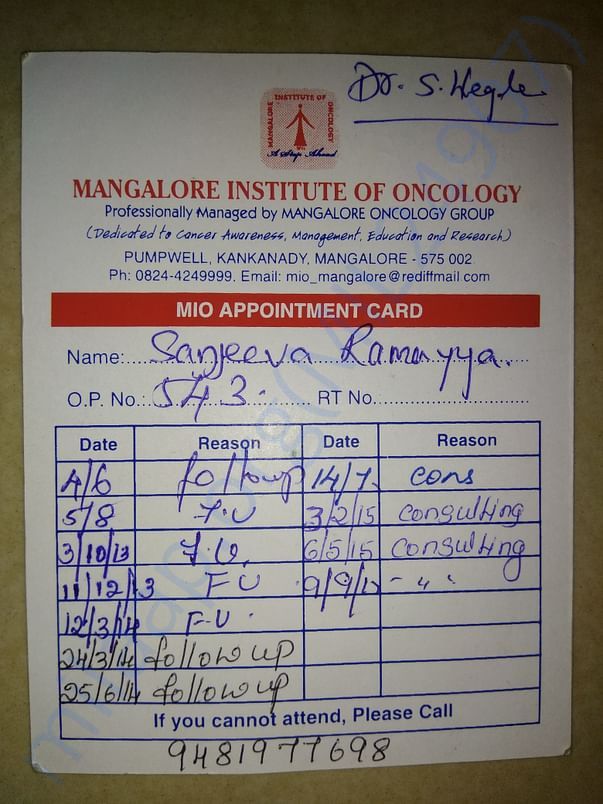 Dr. S. Hegde
MANGALORE INSTITUTE OF ONCOLOGY
A Step Ahead
MANGALORE INSTITUTE OF ONCOLOGY
Professionally Managed by MANGALORE ONCOLOGY GROUP
(Dedicated to Cancer Awareness, Management, Education and Research)
PUMPWELL, KANKANADY, MANGALORE - 575 002
Ph: 0824-4249999. Email: mio_mangalore@rediffmail.com
MIO APPOINTMENT CARD
Name: Sanjeeva Ramayya.
O.P. No.: 543. RT No.
Date Reason Date Reason
4/6 followup 14/7 cons
5/8 F.U 3/2/15 consulting
3/10/13 F.U. 6/5/15 consulting
11/12/13 F U 9/9/15 - " "
12/3/14 F-U .
24/3/14 follow up
25/6/14 follow up
If you cannot attend, Please Call
9481977698